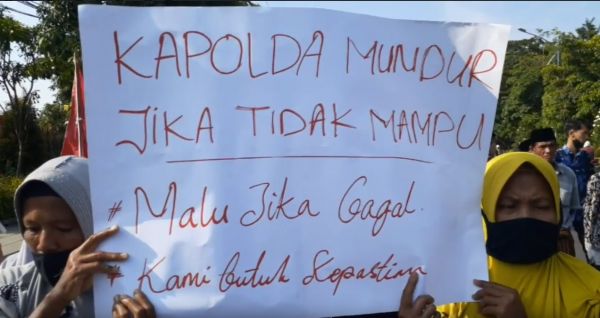 KAPOLDA MUNDUR
JIKA TIDAK MAMPU
# Malu Jika Gagal.
# Kami Butuh Kepastian